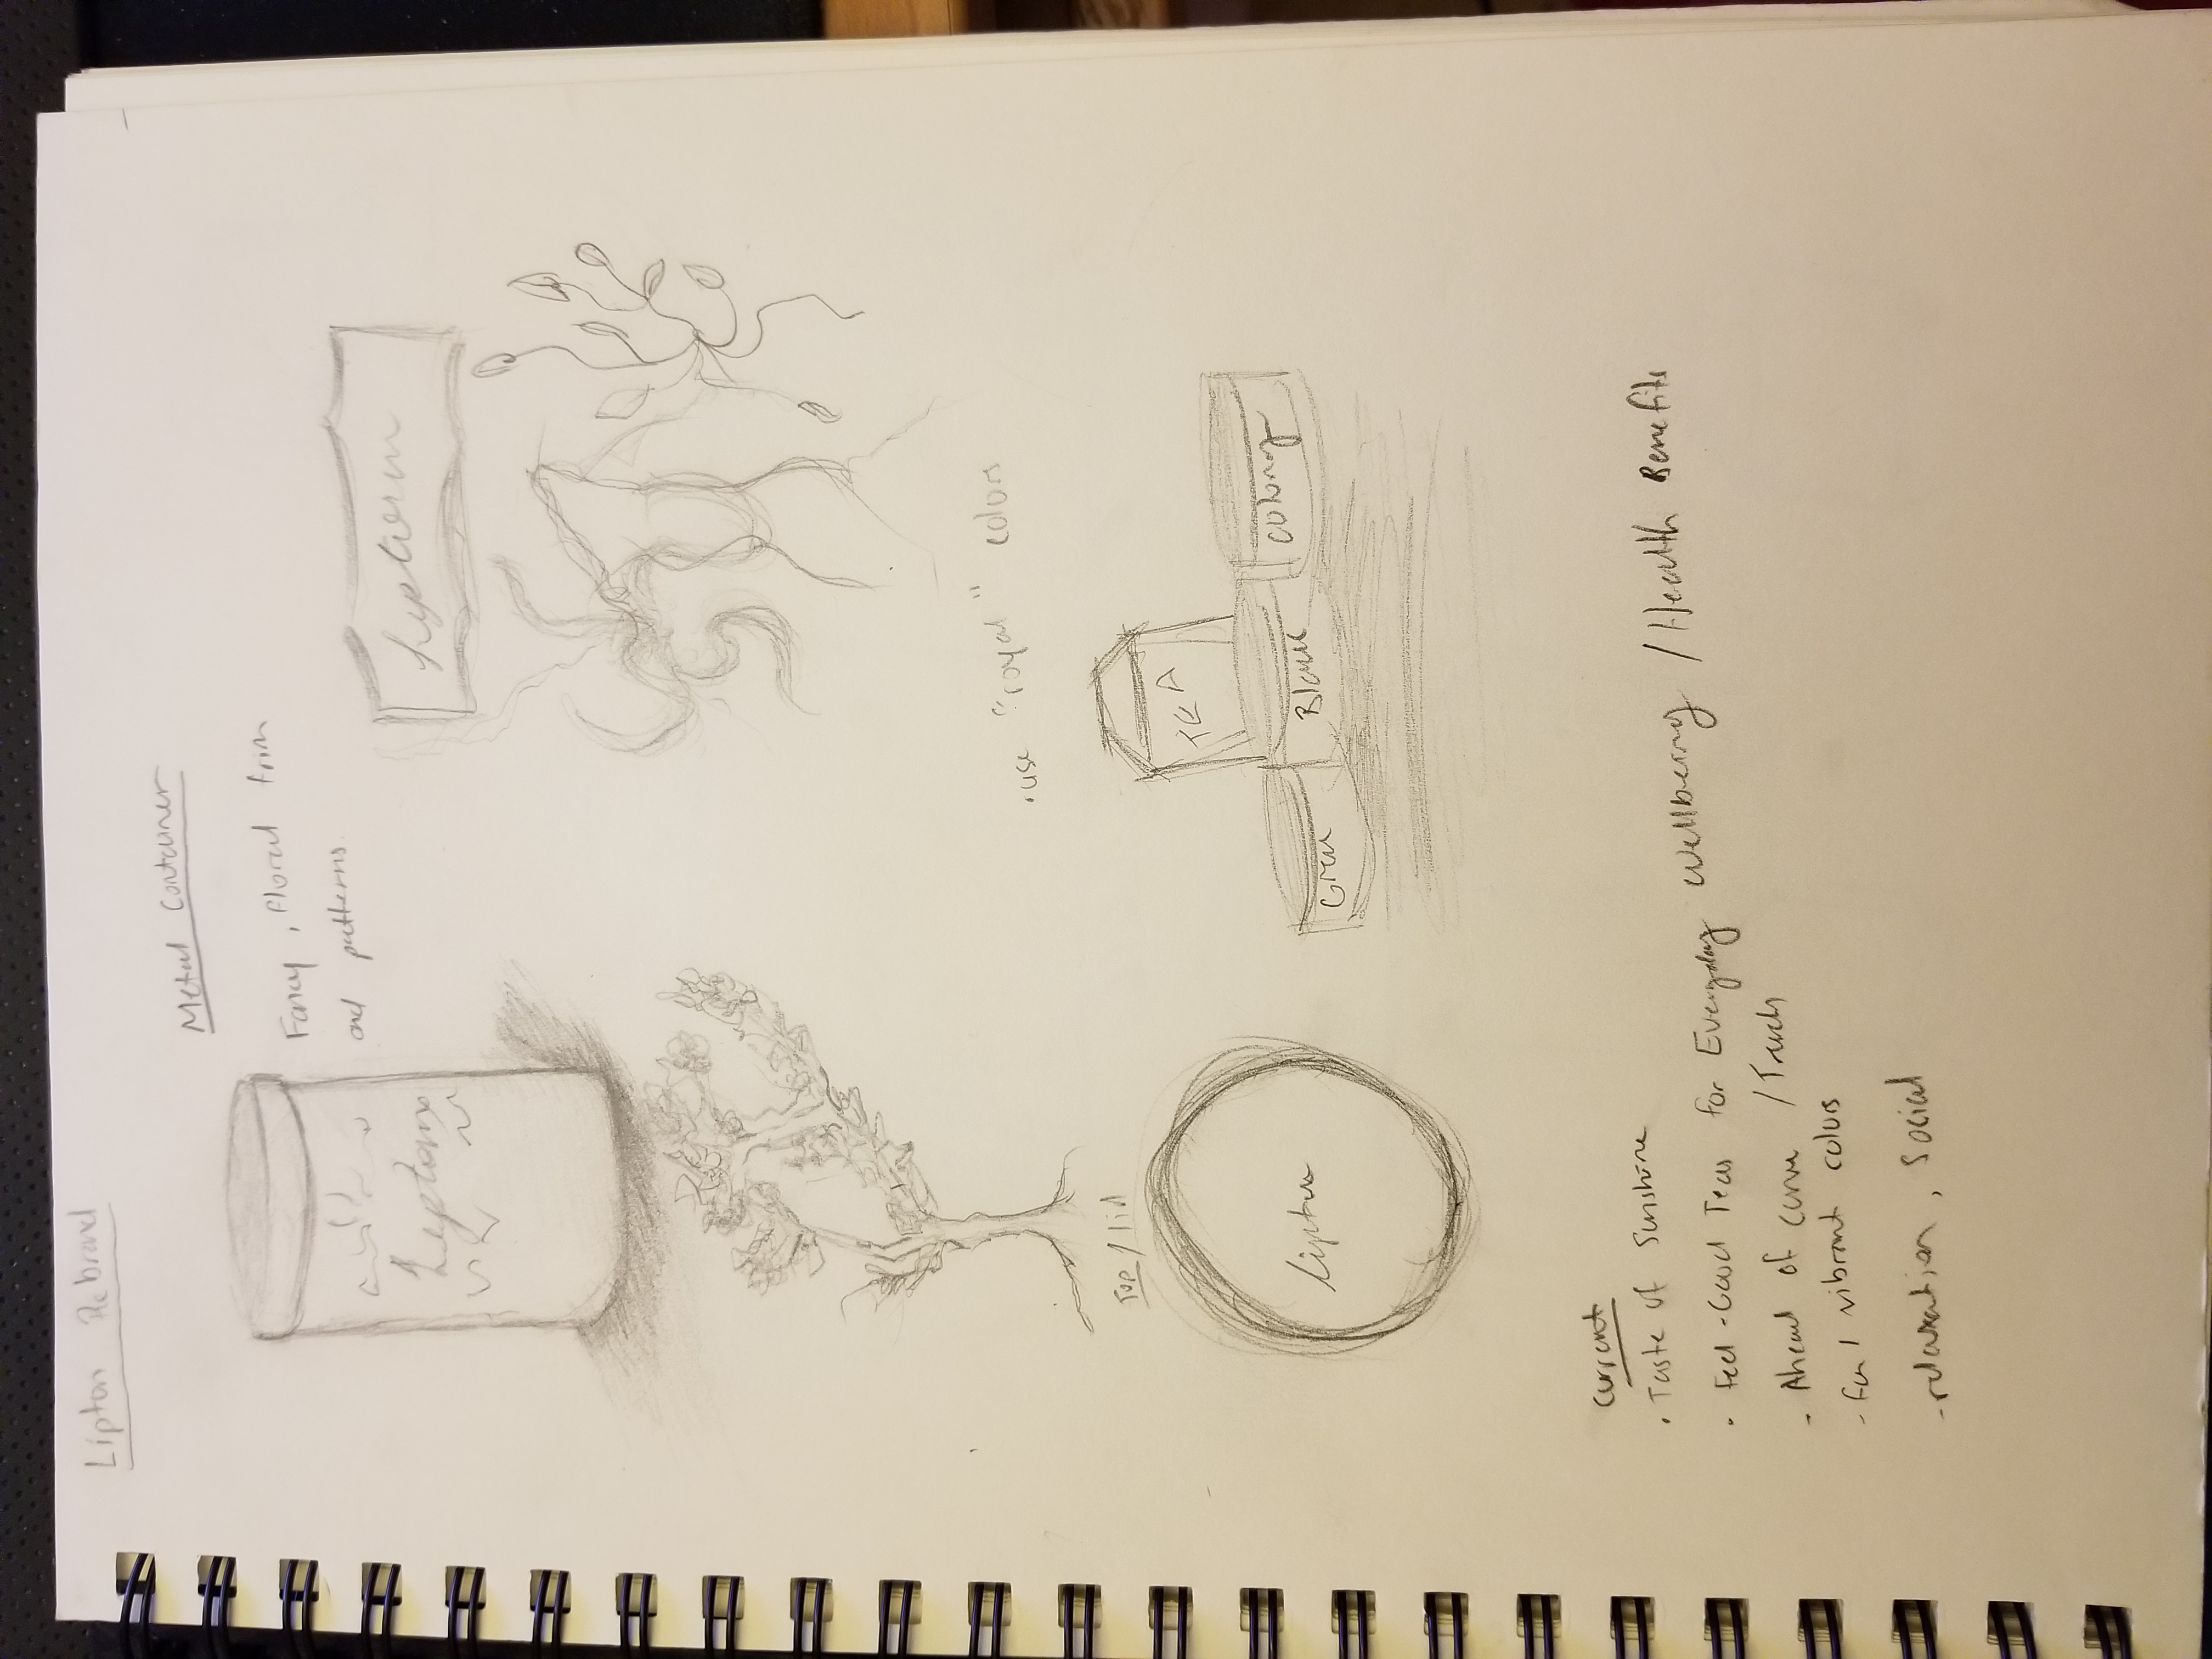 Lipton Rebrand
Metal Container
Fancy, floral trim
and patterns.
Lipton
Lipton
• use "royal" colors
Top / lid
Lipton
TEA
Green
Black
Oolong
Current
• Taste of Sunshine
• Feel-Good Teas for Everyday Wellbeing / Health Benefits
- Ahead of curve / Trends
- fun / vibrant colors
- relaxation, Social